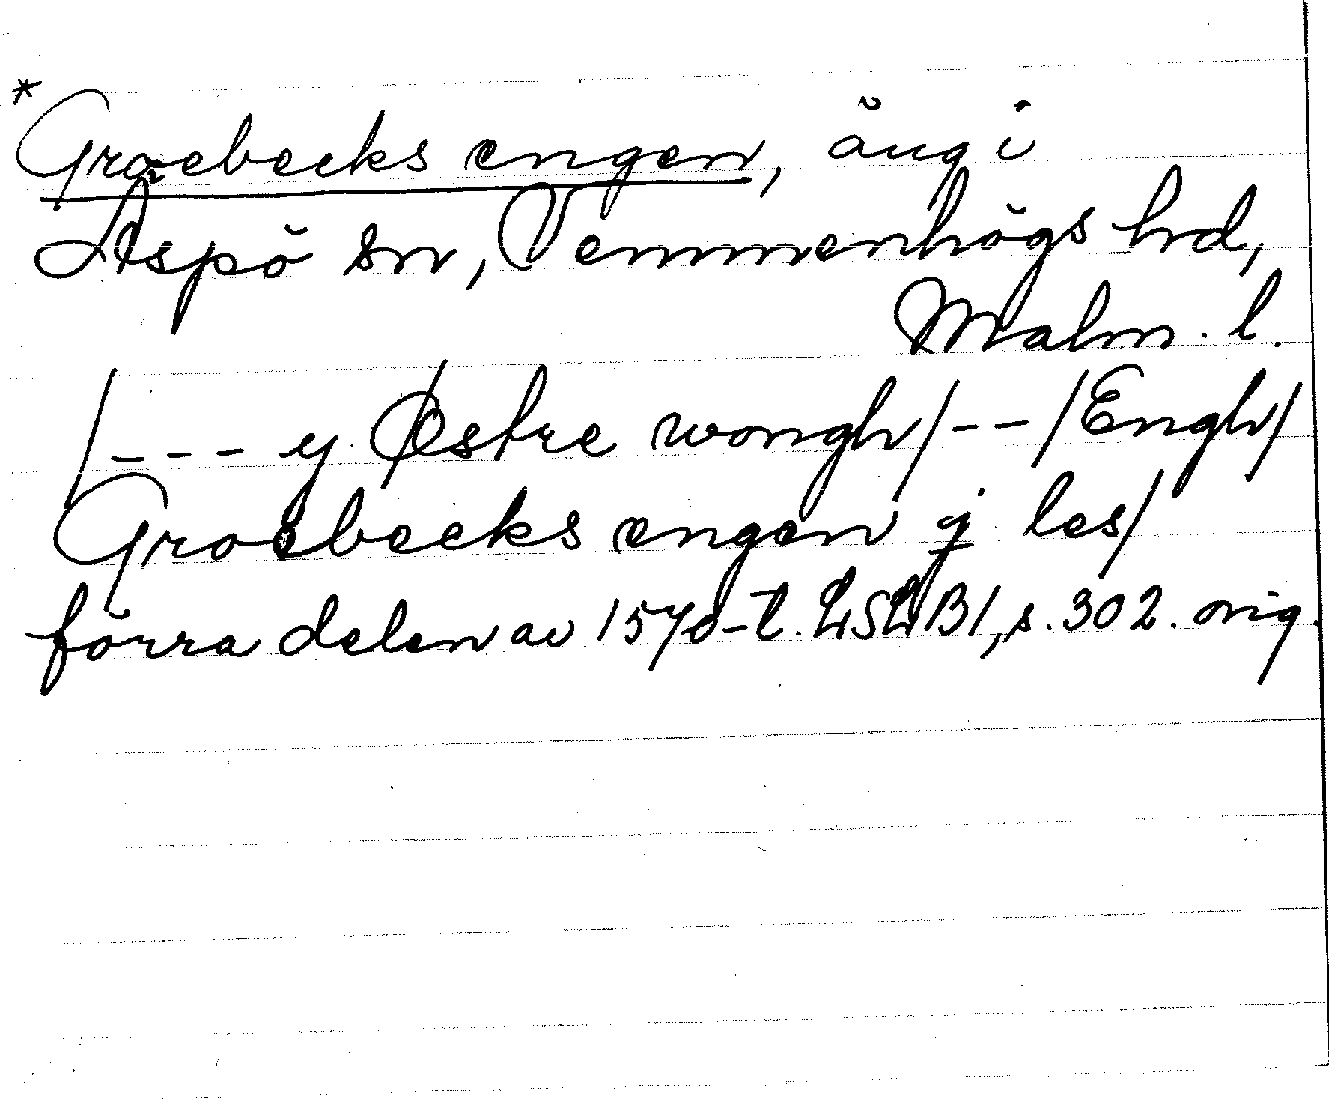 * Groebecks engen, äng i
Äspö sn, Vemmenhögs hrd,
Malm. l.
/--- y Østre wongh/--/Engh/
Groebecks engen j les/
förra delen av 1570-t. LSLB1, s. 302. orig.